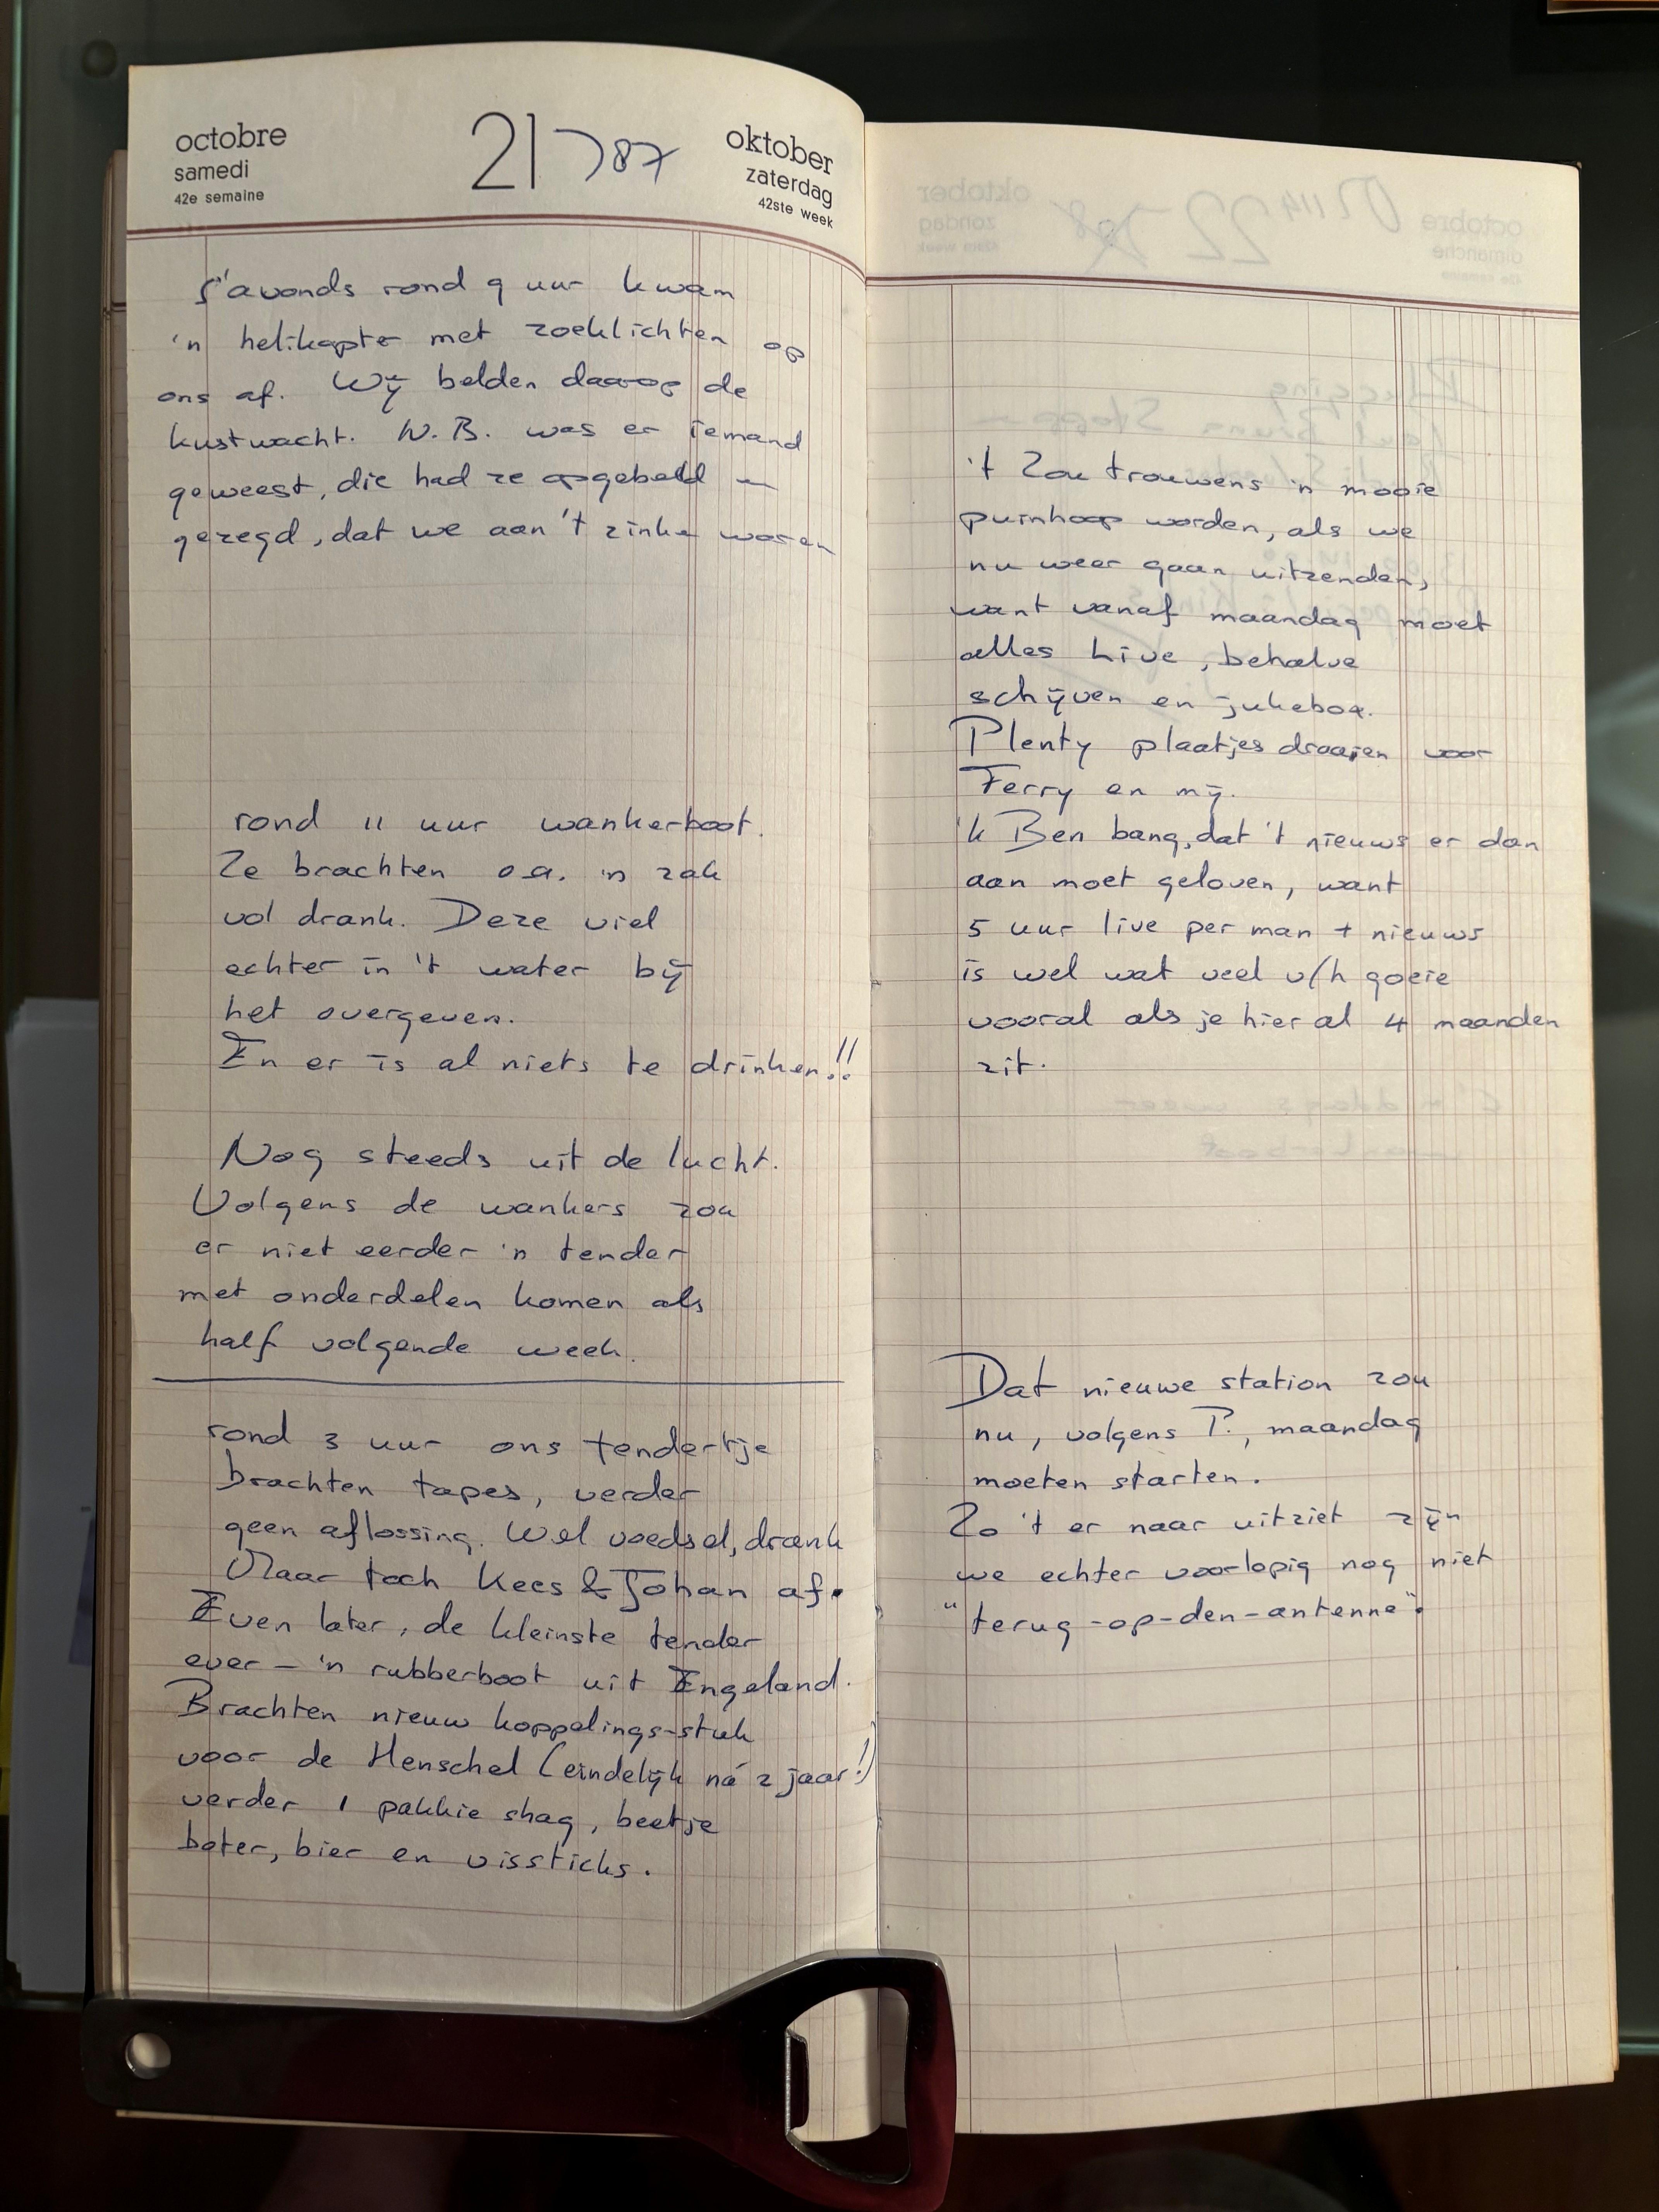 octobre
samedi
42e semaine
21 787
oktober
zaterdag
42ste week
s'avonds rond 9 uur kwam
'n helikopter met zoeklichten op
ons af. Wij belden daarop de
kustwacht. N.B. was er iemand
geweest, die had ze opgebeld en
gezegd, dat we aan 't zinken waren
rond 11 uur wankerboot.
Ze brachten o.a. 'n zak
vol drank. Deze viel
echter in 't water bij
het overgeven.
En er is al niets te drinken!!
Nog steeds uit de lucht.
Volgens de wankers zou
er niet eerder 'n tender
met onderdelen komen als
half volgende week.
rond 3 uur ons tendertje
brachten tapes, verder
geen aflossing. Wel voedsel, drank
Maar toch Kees & Johan af.
Even later, de kleinste tender
ever – 'n rubberboot uit Engeland.
Brachten nieuw koppelings-stuk
voor de Henschel (eindelijk ná 2 jaar!)
verder 1 pakkie shag, beetje
boter, bier en vissticks.
't Zou trouwens 'n mooie
puinhoop worden, als we
nu weer gaan uitzenden,
want vanaf maandag moet
alles Live, behalve
schijven en jukebox.
Plenty plaatjes draaien voor
Ferry en mij.
'k Ben bang, dat 't nieuws er dan
aan moet geloven, want
5 uur live per man + nieuws
is wel wat veel v/h goeie
vooral als je hier al 4 maanden
zit.
Dat nieuwe station zou
nu, volgens P., maandag
moeten starten.
Zo 't er naar uitziet zijn
we echter voorlopig nog niet
"terug-op-den-antenne".